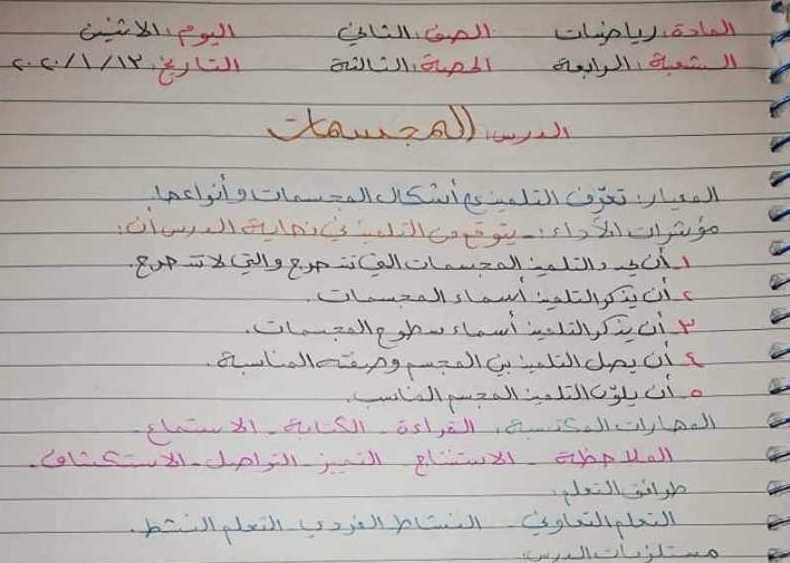 المادة: رياضيات الصف: الثاني اليوم: الاثنين
الشعبة: الرابعة الحصة: الثالثة التاريخ: ٢٠٢٠/١/١٣
الدرس: المجسمات
المعيار: تعرّف التلميذ في أشكال المجسمات وأنواعها.
مؤشرات الأداء: - يتوقع من التلميذ في نهاية الدرس أن:
١- أن يحدد التلميذ المجسمات التي تتدحرج والتي لا تتدحرج.
٢- أن يذكر التلميذ أسماء المجسمات.
٣- أن يذكر التلميذ أسماء سطوح المجسمات.
٤- أن يصل التلميذ بين المجسم وصفته المناسبة.
٥- أن يلوّن التلميذ المجسم المناسب.
المهارات المكتسبة: القراءة - الكتابة - الاستماع -
الملاحظة - الاستنتاج - التمييز - التواصل - الاستكشاف.
طرائق التعلم:
التعلم التعاوني - النشاط الفردي - التعلم النشط.
مستلزمات الدرس: